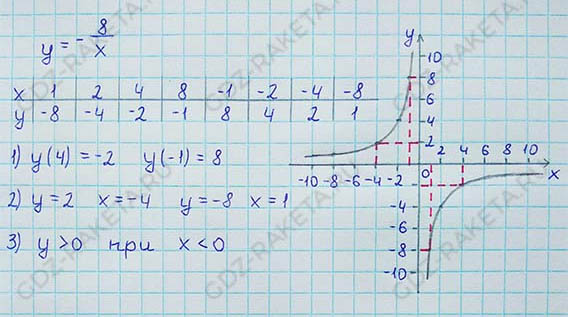 y = - 8/x
x 1 2 4 8 -1 -2 -4 -8
y -8 -4 -2 -1 8 4 2 1
1) y(4) = -2 y(-1) = 8
2) y = 2 x = -4 y = -8 x = 1
3) y > 0 при x < 0
y
10
8
6
4
2
-10 -8 -6 -4 -2 0 2 4 6 8 10 x
-4
-6
-8
-10
GDZ-RAKETA.RU